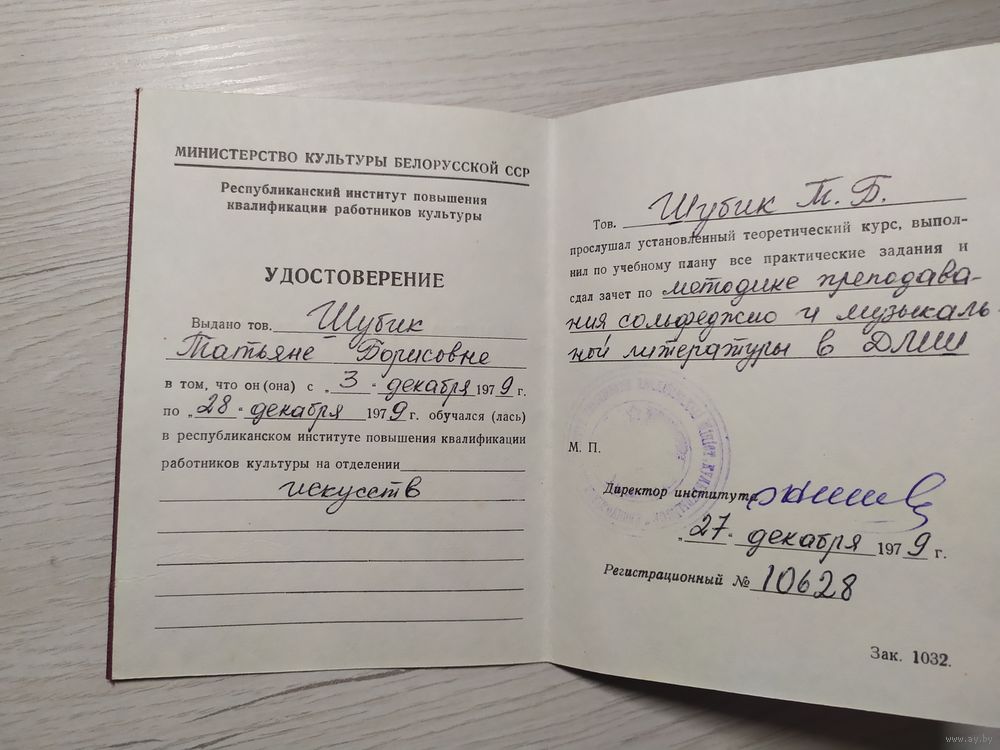 МИНИСТЕРСТВО КУЛЬТУРЫ БЕЛОРУССКОЙ ССР
Республиканский институт повышения
квалификации работников культуры
УДОСТОВЕРЕНИЕ
Выдано тов. Шубик
Татьяне Борисовне
в том, что он (она) с „3" декабря 1979 г.
по „28" декабря 1979 г. обучался (лась)
в республиканском институте повышения квалификации
работников культуры на отделении
искусств
Тов. Шубик Т. Б.
прослушал установленный теоретический курс, выпол-
нил по учебному плану все практические задания и
сдал зачет по методике преподава-
ния сольфеджио и музыкаль-
ной литературы в ДМШ
М. П.
Директор института
„27" декабря 1979 г.
Регистрационный № 10628
Зак. 1032.
www.ay.by